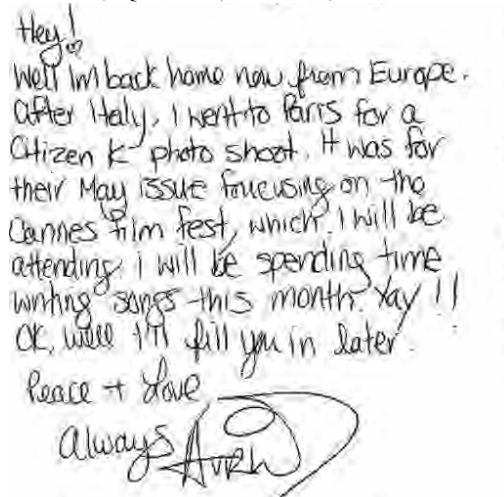 Hey!
Well Im back home now from Europe.
After Italy, I went to Paris for a
Citizen K photo shoot. It was for
their May issue foucusing on the
Cannes film fest, which I will be
attending. i will be spending time
writing songs this month. Yay !!
OK, well I'll fill you in later.
Peace + Love
always
Avril